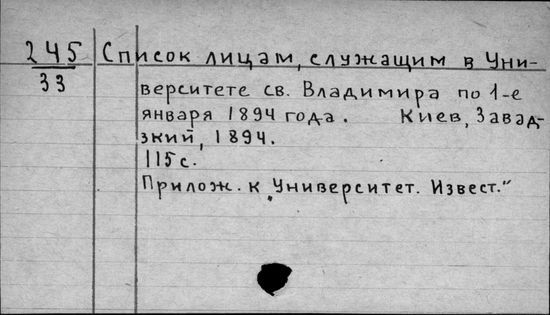 245
33
Список лицам, служащим в Уни-
верситете св. Владимира по 1-е
января 1894 года. Киев, Завад-
зкий, 1894.
115 с.
Прилож. к „Университет. Извест."